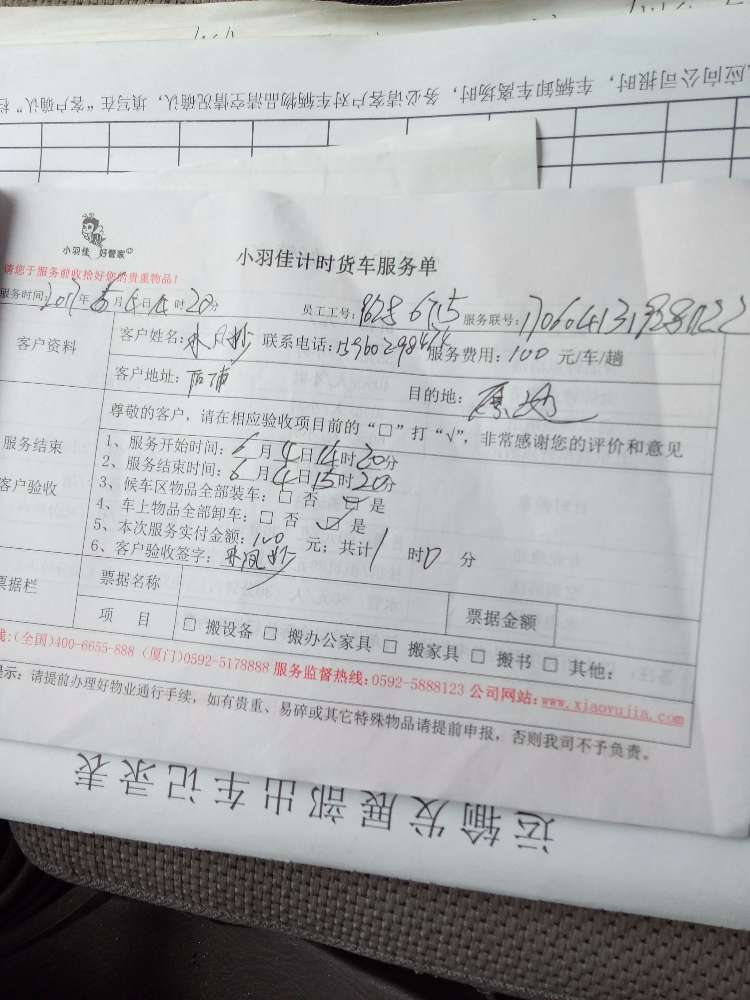 应向公司报时，车辆卸车离场时，务必请客户对车辆物品清空情况确认，填写在“客户确认”栏
小羽佳 好管家
小羽佳计时货车服务单
请您于服务前收拾好您的贵重物品！
服务时间：2017年6月4日14时20分 员工工号：9628 6715 服务联号：
客户资料
客户姓名： 联系电话： 服务费用：100 元/车/趟
客户地址：后浦 目的地：
尊敬的客户，请在相应验收项目前的“□”打“√”，非常感谢您的评价和意见
服务结束
客户验收
1、服务开始时间：6月4日14时20分
2、服务结束时间：6月4日15时20分
3、候车区物品全部装车：□ 否 ☑ 是
4、车上物品全部卸车：□ 否 ☑ 是
5、本次服务实付金额：100 元；共计1时0分
6、客户验收签字：
票据栏
票据名称 票据金额
项 目 □ 搬设备 □ 搬办公家具 □ 搬家具 □ 搬书 □ 其他：
线:(全国)400-6655-888 (厦门)0592-5178888 服务监督热线:0592-5888123 公司网站:www.xiaoyujia.com
提示：请提前办理好物业通行手续，如有贵重、易碎或其它特殊物品请提前申报，否则我司不予负责。
运输发展部出车记录表